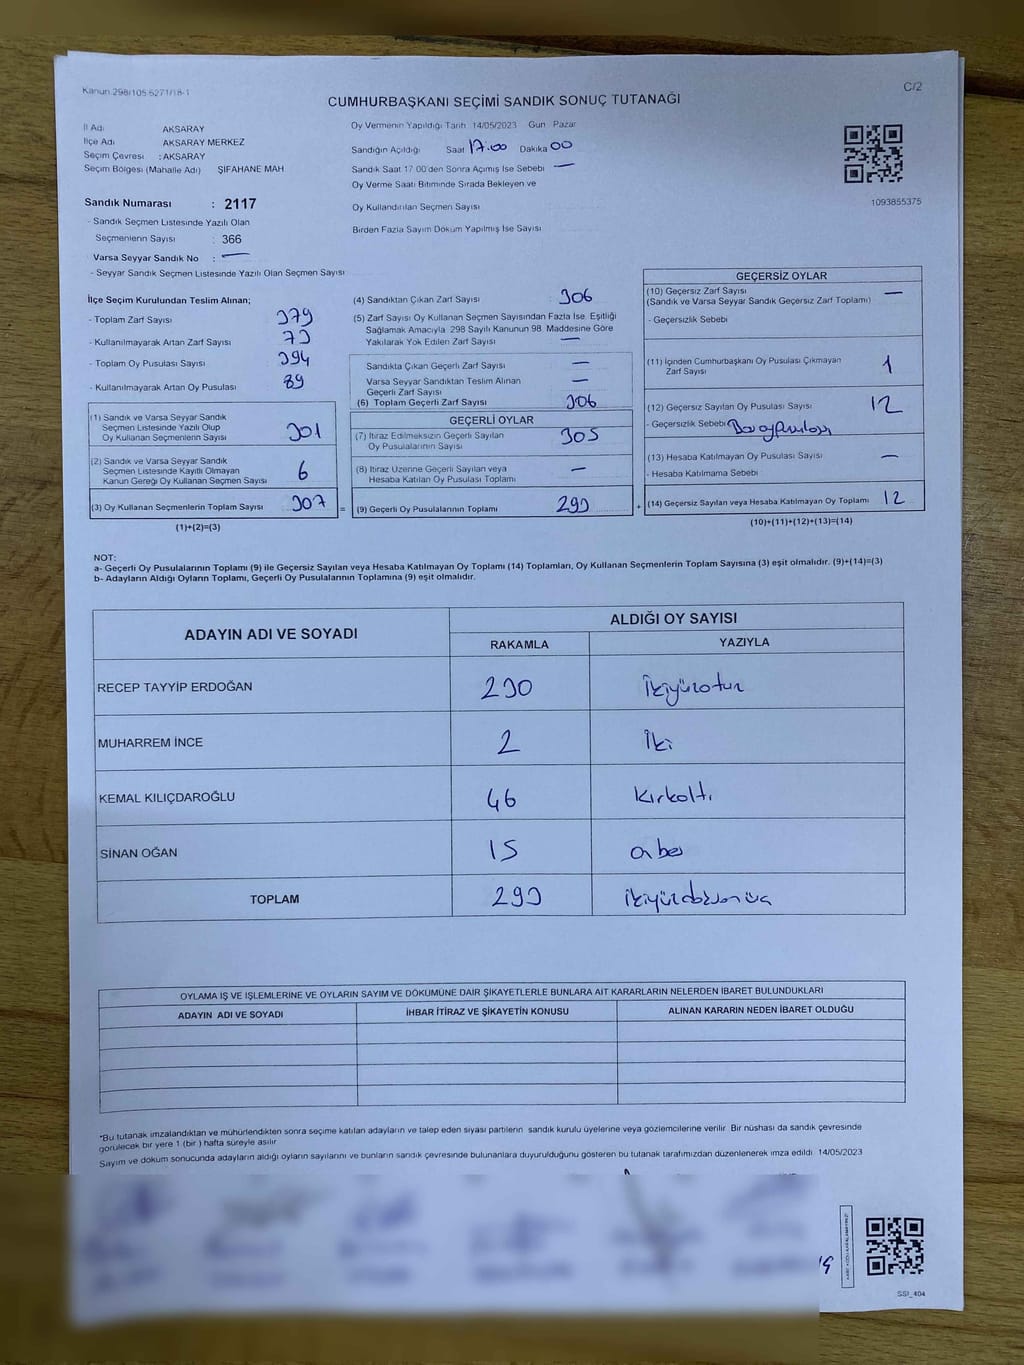 Kanun 298/105 6271/18-1
C/2
CUMHURBAŞKANI SEÇİMİ SANDIK SONUÇ TUTANAĞI
İl Adı AKSARAY
İlçe Adı AKSARAY MERKEZ
Seçim Çevresi : AKSARAY
Seçim Bölgesi (Mahalle Adı) ŞİFAHANE MAH
Sandık Numarası : 2117
- Sandık Seçmen Listesinde Yazılı Olan
Seçmenlerin Sayısı : 366
Varsa Seyyar Sandık No : —
- Seyyar Sandık Seçmen Listesinde Yazılı Olan Seçmen Sayısı
Oy Vermenin Yapıldığı Tarih 14/05/2023 Gün Pazar
Sandığın Açıldığı Saat 17.00 Dakika 00
Sandık Saat 17 00'den Sonra Açılmış İse Sebebi —
Oy Verme Saati Bitiminde Sırada Bekleyen ve
Oy Kullandırılan Seçmen Sayısı
Birden Fazla Sayım Döküm Yapılmış İse Sayısı
1093855375
İlçe Seçim Kurulundan Teslim Alınan;
- Toplam Zarf Sayısı 379
- Kullanılmayarak Artan Zarf Sayısı 73
- Toplam Oy Pusulası Sayısı 394
- Kullanılmayarak Artan Oy Pusulası 89
(1) Sandık ve Varsa Seyyar Sandık
Seçmen Listesinde Yazılı Olup
Oy Kullanan Seçmenlerin Sayısı 301
(2) Sandık ve Varsa Seyyar Sandık
Seçmen Listesinde Kayıtlı Olmayan
Kanun Gereği Oy Kullanan Seçmen Sayısı 6
(3) Oy Kullanan Seçmenlerin Toplam Sayısı 307
(1)+(2)=(3)
(4) Sandıktan Çıkan Zarf Sayısı 306
(5) Zarf Sayısı Oy Kullanan Seçmen Sayısından Fazla İse, Eşitliği
Sağlamak Amacıyla 298 Sayılı Kanunun 98. Maddesine Göre
Yakılarak Yok Edilen Zarf Sayısı —
Sandıkta Çıkan Geçerli Zarf Sayısı —
Varsa Seyyar Sandıktan Teslim Alınan
Geçerli Zarf Sayısı —
(6) Toplam Geçerli Zarf Sayısı 306
GEÇERLİ OYLAR
(7) İtiraz Edilmeksizin Geçerli Sayılan
Oy Pusulalarının Sayısı 305
(8) İtiraz Üzerine Geçerli Sayılan veya
Hesaba Katılan Oy Pusulası Toplamı —
= (9) Geçerli Oy Pusulalarının Toplamı 293 +
GEÇERSİZ OYLAR
(10) Geçersiz Zarf Sayısı —
(Sandık ve Varsa Seyyar Sandık Geçersiz Zarf Toplamı)
- Geçersizlik Sebebi
(11) İçinden Cumhurbaşkanı Oy Pusulası Çıkmayan
Zarf Sayısı 1
(12) Geçersiz Sayılan Oy Pusulası Sayısı 12
- Geçersizlik Sebebi
(13) Hesaba Katılmayan Oy Pusulası Sayısı —
- Hesaba Katılmama Sebebi
(14) Geçersiz Sayılan veya Hesaba Katılmayan Oy Toplamı 12
(10)+(11)+(12)+(13)=(14)
NOT:
a- Geçerli Oy Pusulalarının Toplamı (9) ile Geçersiz Sayılan veya Hesaba Katılmayan Oy Toplamı (14) Toplamları, Oy Kullanan Seçmenlerin Toplam Sayısına (3) eşit olmalıdır. (9)+(14)=(3)
b- Adayların Aldığı Oyların Toplamı, Geçerli Oy Pusulalarının Toplamına (9) eşit olmalıdır.
ADAYIN ADI VE SOYADI
ALDIĞI OY SAYISI
RAKAMLA YAZIYLA
RECEP TAYYİP ERDOĞAN 230 ikiyüzotuz
MUHARREM İNCE 2 İki
KEMAL KILIÇDAROĞLU 46 kırkaltı
SİNAN OĞAN 15 onbeş
TOPLAM 293 ikiyüzdoksanüç
OYLAMA İŞ VE İŞLEMLERİNE VE OYLARIN SAYIM VE DÖKÜMÜNE DAİR ŞİKAYETLERLE BUNLARA AİT KARARLARIN NELERDEN İBARET BULUNDUKLARI
ADAYIN ADI VE SOYADI İHBAR İTİRAZ VE ŞİKAYETİN KONUSU ALINAN KARARIN NEDEN İBARET OLDUĞU
*Bu tutanak imzalandıktan ve mühürlendikten sonra seçime katılan adayların ve talep eden siyasi partilerin sandık kurulu üyelerine veya gözlemcilerine verilir. Bir nüshası da sandık çevresinde
görülecek bir yere 1 (bir ) hafta süreyle asılır
Sayım ve döküm sonucunda adayların aldığı oyların sayılarını ve bunların sandık çevresinde bulunanlara duyurulduğunu gösteren bu tutanak tarafımızdan düzenlenerek imza edildi 14/05/2023
SSİ_404